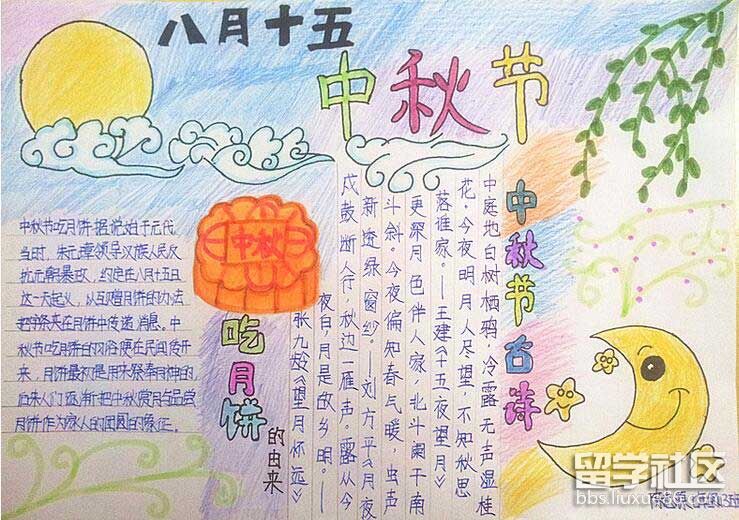 八月十五
中秋节
中秋
中秋节吃月饼据说始于元代
当时，朱元璋领导汉族人民反
抗元朝暴政，约定在八月十五日
这一天起义，以互赠月饼的办法
把字条夹在月饼中传递消息。中
秋节吃月饼的习俗便在民间传开
来，月饼最初是用来祭奉月神的
后来人们逐渐把中秋赏月与品尝
月饼作为家人的团圆的象征。
吃月饼
的由来
中秋节古诗
中庭地白树栖鸦，冷露无声湿桂
花。今夜明月人尽望，不知秋思
落谁家。—王建《十五夜望月》
更深月色伴人家，北斗阑干南
斗斜。今夜偏知春气暖，虫声
新透绿窗纱。—刘方平《月夜
戍鼓断人行，秋边一雁声。露从今
夜白，月是故乡明。—
张九龄《望月怀远》
留学社区
bbs.liuxue86.com